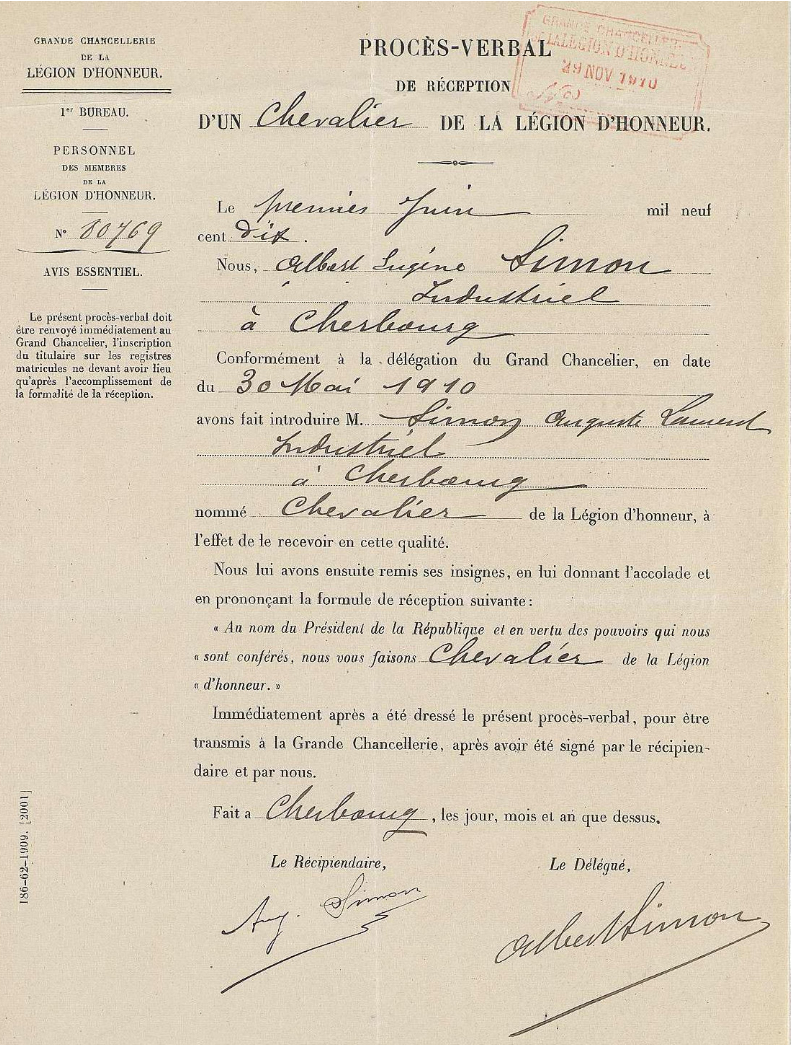 GRANDE CHANCELLERIE
DE LA
LÉGION D'HONNEUR.
1er BUREAU.
PERSONNEL
DES MEMBRES
DE LA
LÉGION D'HONNEUR.
N° 80769
AVIS ESSENTIEL.
Le présent procès-verbal doit
être renvoyé immédiatement au
Grand Chancelier, l'inscription
du titulaire sur les registres
matricules ne devant avoir lieu
qu'après l'accomplissement de
la formalité de la réception.
186-62-1909. [2001]
GRANDE CHANCELLERIE
DE LA LÉGION D'HONNEUR
29 NOV 1910
PROCÈS-VERBAL
DE RÉCEPTION
D'UN Chevalier DE LA LÉGION D'HONNEUR.
Le premier Juin mil neuf
cent dix.
Nous, Albert Eugène Simon
Industriel
à Cherbourg
Conformément à la délégation du Grand Chancelier, en date
du 30 Mai 1910
avons fait introduire M. Simon Auguste Laurent
Industriel
à Cherbourg
nommé Chevalier de la Légion d'honneur, à
l'effet de le recevoir en cette qualité.
Nous lui avons ensuite remis ses insignes, en lui donnant l'accolade et
en prononçant la formule de réception suivante :
« Au nom du Président de la République et en vertu des pouvoirs qui nous
« sont conférés, nous vous faisons Chevalier de la Légion
« d'honneur. »
Immédiatement après a été dressé le présent procès-verbal, pour être
transmis à la Grande Chancellerie, après avoir été signé par le récipien-
daire et par nous.
Fait a Cherbourg, les jour, mois et an que dessus.
Le Récipiendaire,
Le Délégué,
Aug. Simon
Albert Simon